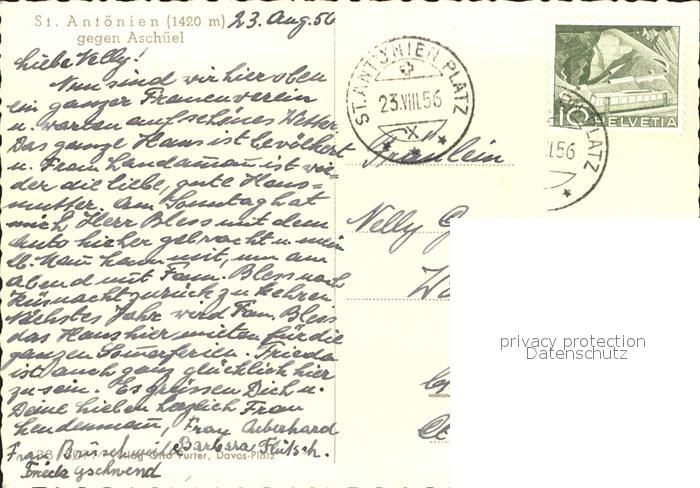 St. Antönien (1420 m) 23. Aug. 56
gegen Aschüel
Liebe Nelly!
Nun sind wir hier oben
ein ganzer Frauenverein
u. warten auf schönes Wetter.
Das ganze Haus ist bevölkert
u. Frau Landaman ist wie-
der die liebe, gute Haus=
mutter. Am Sonntag hat
mich Herr Bless mit dem
Auto hieher gebracht u. mein
Mann kam mit, um am
Abend mit Fam. Bless nach
Küsnacht zurück zu kehren.
Nächstes Jahr wird Fam. Bless
das Haus hier mieten für die
ganzen Somerferien. Frieda
ist auch ganz glücklich hier
zu sein. Es grüssen Dich u.
Deine lieben herzlich Frau
Lendenmann, Frau Aeberhard
Frau Brüschweiler Barbara Flütsch.
Otto Furter, Davos-Platz
Frieda Gschwend
ST. ANTÖNIEN PLATZ
23.VIII.56
X
10 HELVETIA
PLATZ
II.56
Fräulein
Nelly G
privacy protection
Datenschutz